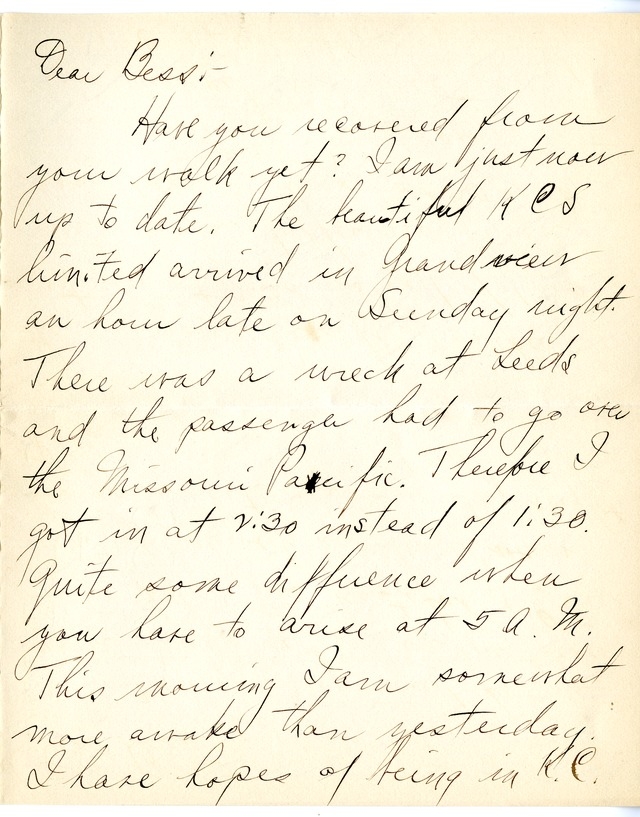 Dear Bess:-
Have you recovered from
your walk yet? I am just now
up to date. The beautiful K C S
limited arrived in Grandview
an hour late on Sunday night.
There was a wreck at Leeds
and the passenger had to go over
the Missouri Pacific. Therefore I
got in at 2:30 instead of 1:30.
Quite some difference when
you have to arise at 5 A. M.
This morning I am somewhat
more awake than yesterday.
I have hopes of being in K.C.